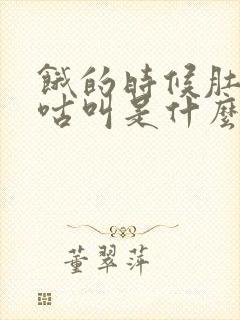 餓的時候肚
咕叫是什麼
董翠萍